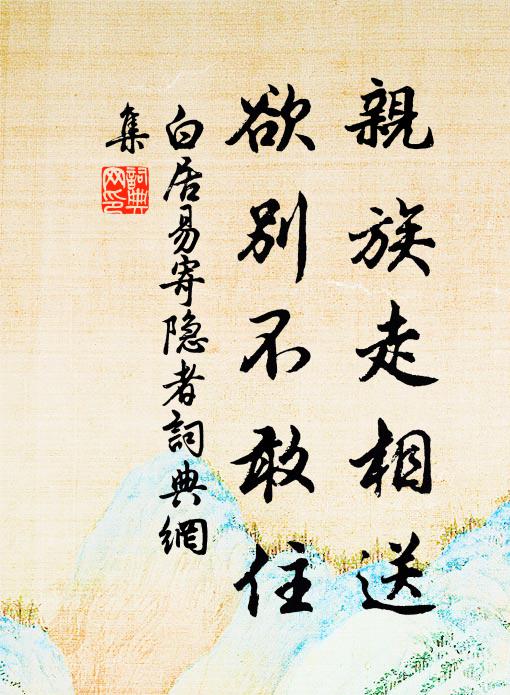 親族走相送
欲別不敢住
白居易寄隐者詞典網
集
詞典
网印